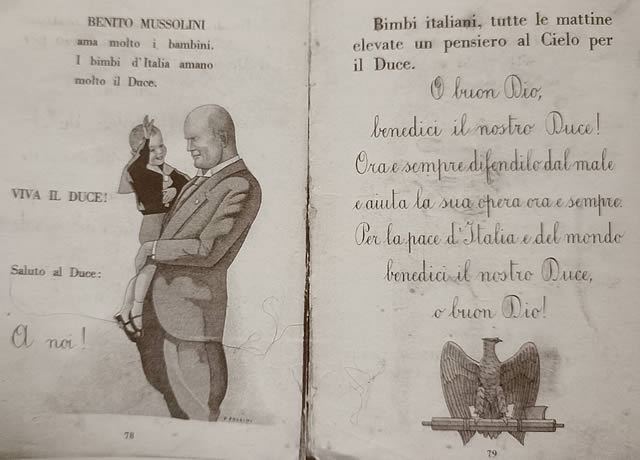 BENITO MUSSOLINI
ama molto i bambini.
I bimbi d'Italia amano
molto il Duce.
VIVA IL DUCE!
Saluto al Duce:
A noi!
78
Bimbi italiani, tutte le mattine
elevate un pensiero al Cielo per
il Duce.
O buon Dio,
benedici il nostro Duce!
Ora e sempre difendilo dal male
e aiuta la sua opera ora e sempre.
Per la pace d'Italia e del mondo
benedici il nostro Duce,
o buon Dio!
79